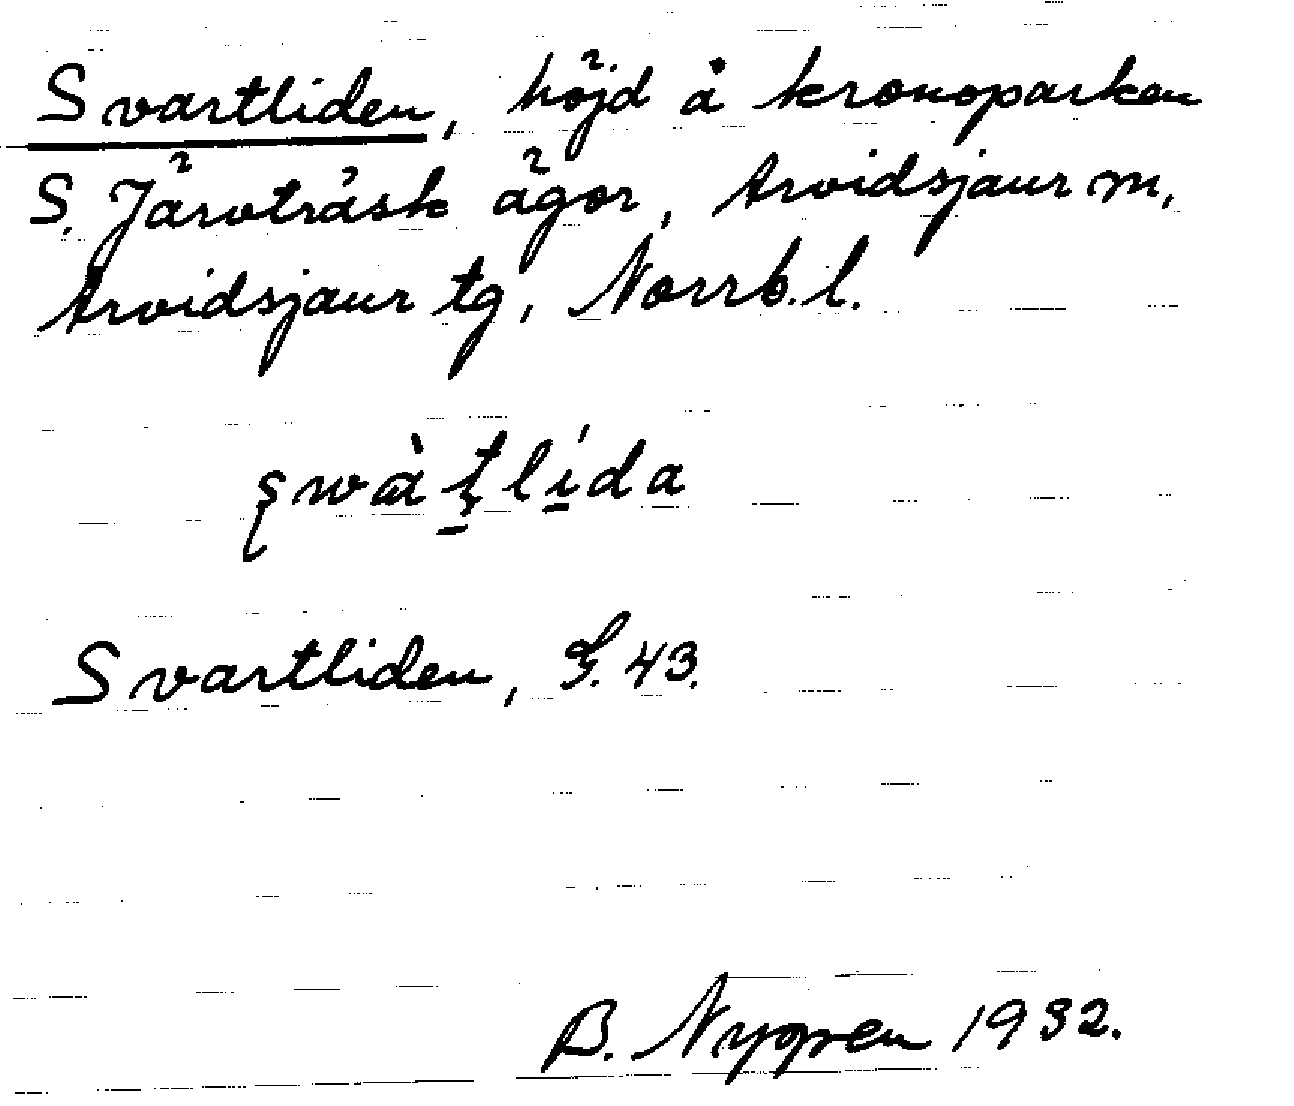 Svartliden, höjd å kronoparken
S. Järvträsk ägor, Arvidsjaur m.
Arvidsjaur tg, Norrb. l.
Svartliden, G. 43.
B. Nygren 1932.